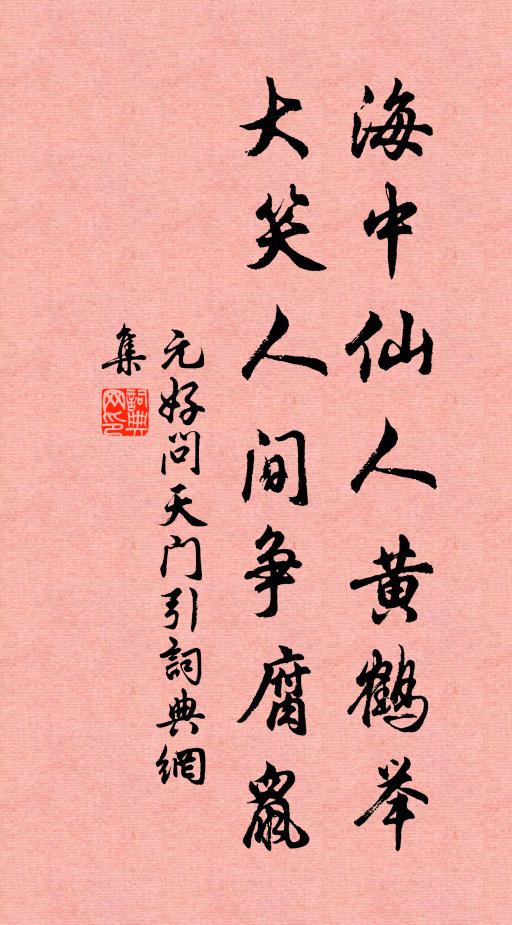 海中仙人黄鹤举
大笑人间争腐鼠
元好问天门引詞典網
集
詞典
网印